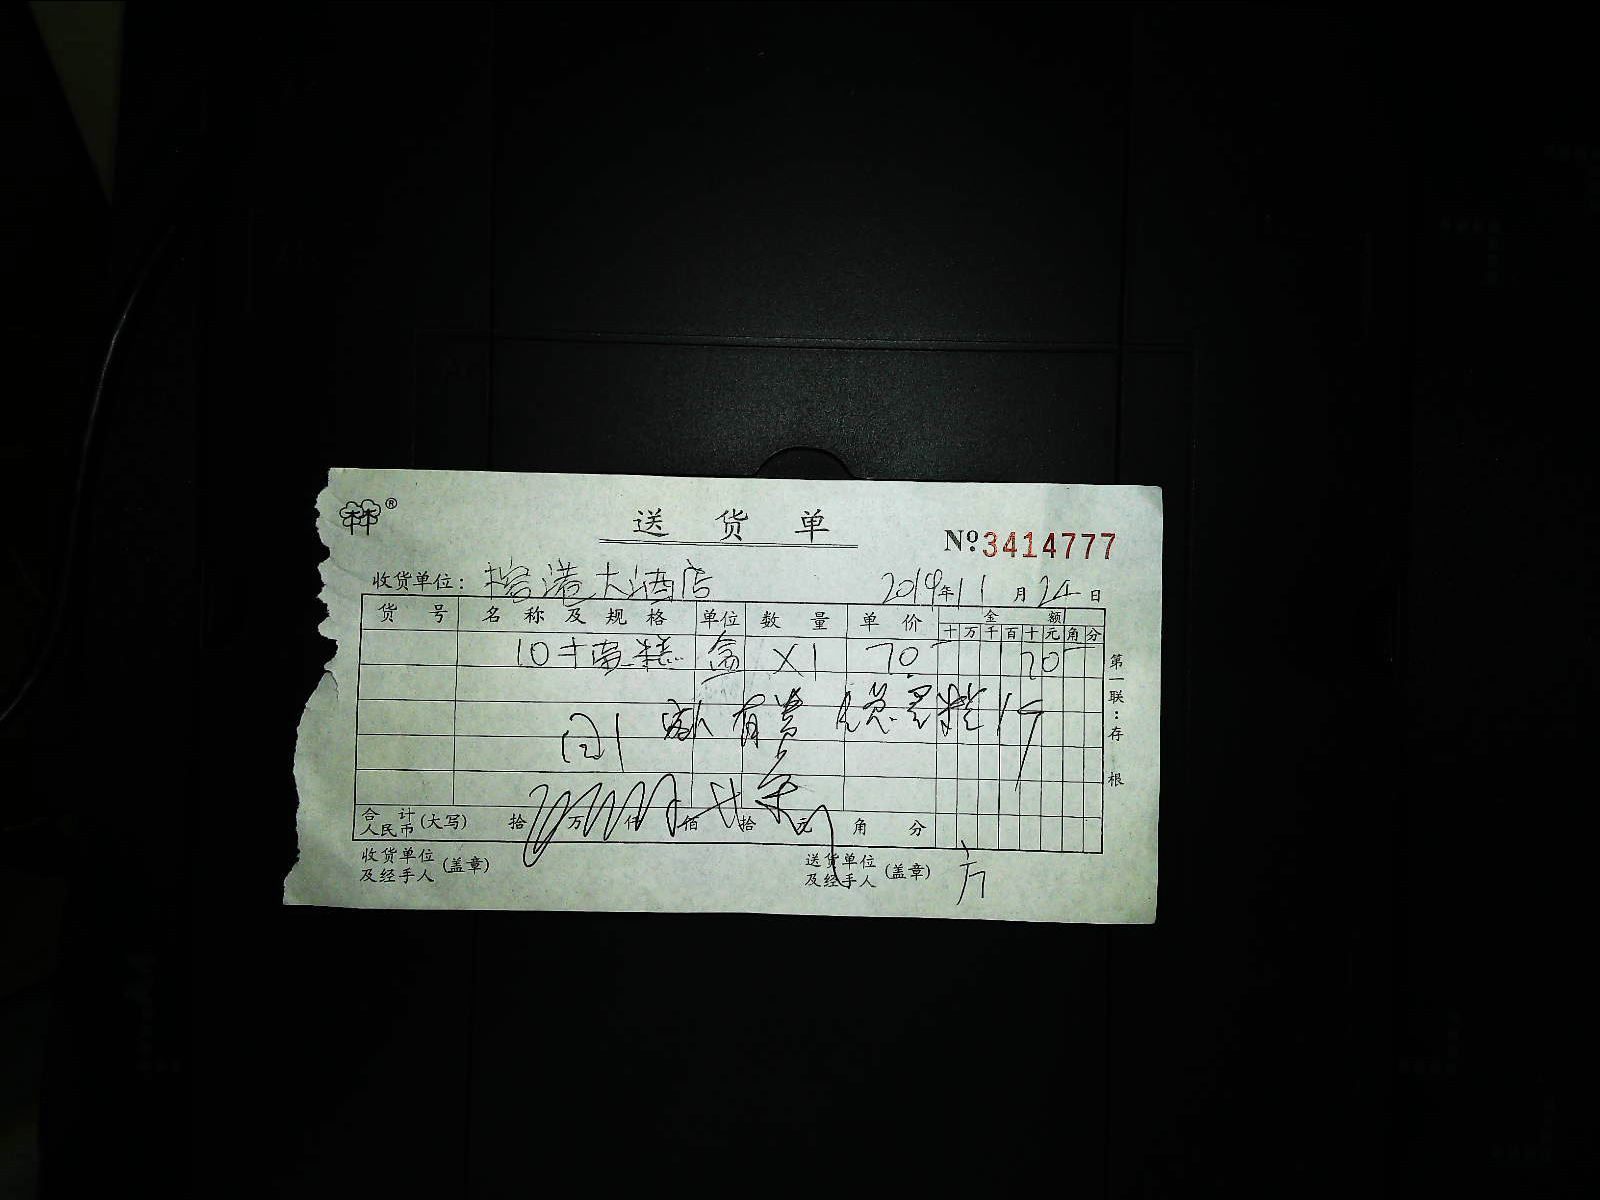 ®
送 货 单
№3414777
收货单位: 榕港大酒店 2019年11月24日
货 号 名 称 及 规 格 单位 数 量 单 价 金 额
十 万 千 百 十 元 角 分
10寸蛋糕 盒 X1 70 70
第一联:存根
合 计
人民币 (大写) 拾 万 仟 佰 拾 元 角 分
收货单位
及经手人 (盖章)
送货单位
及经手人 (盖章) 方